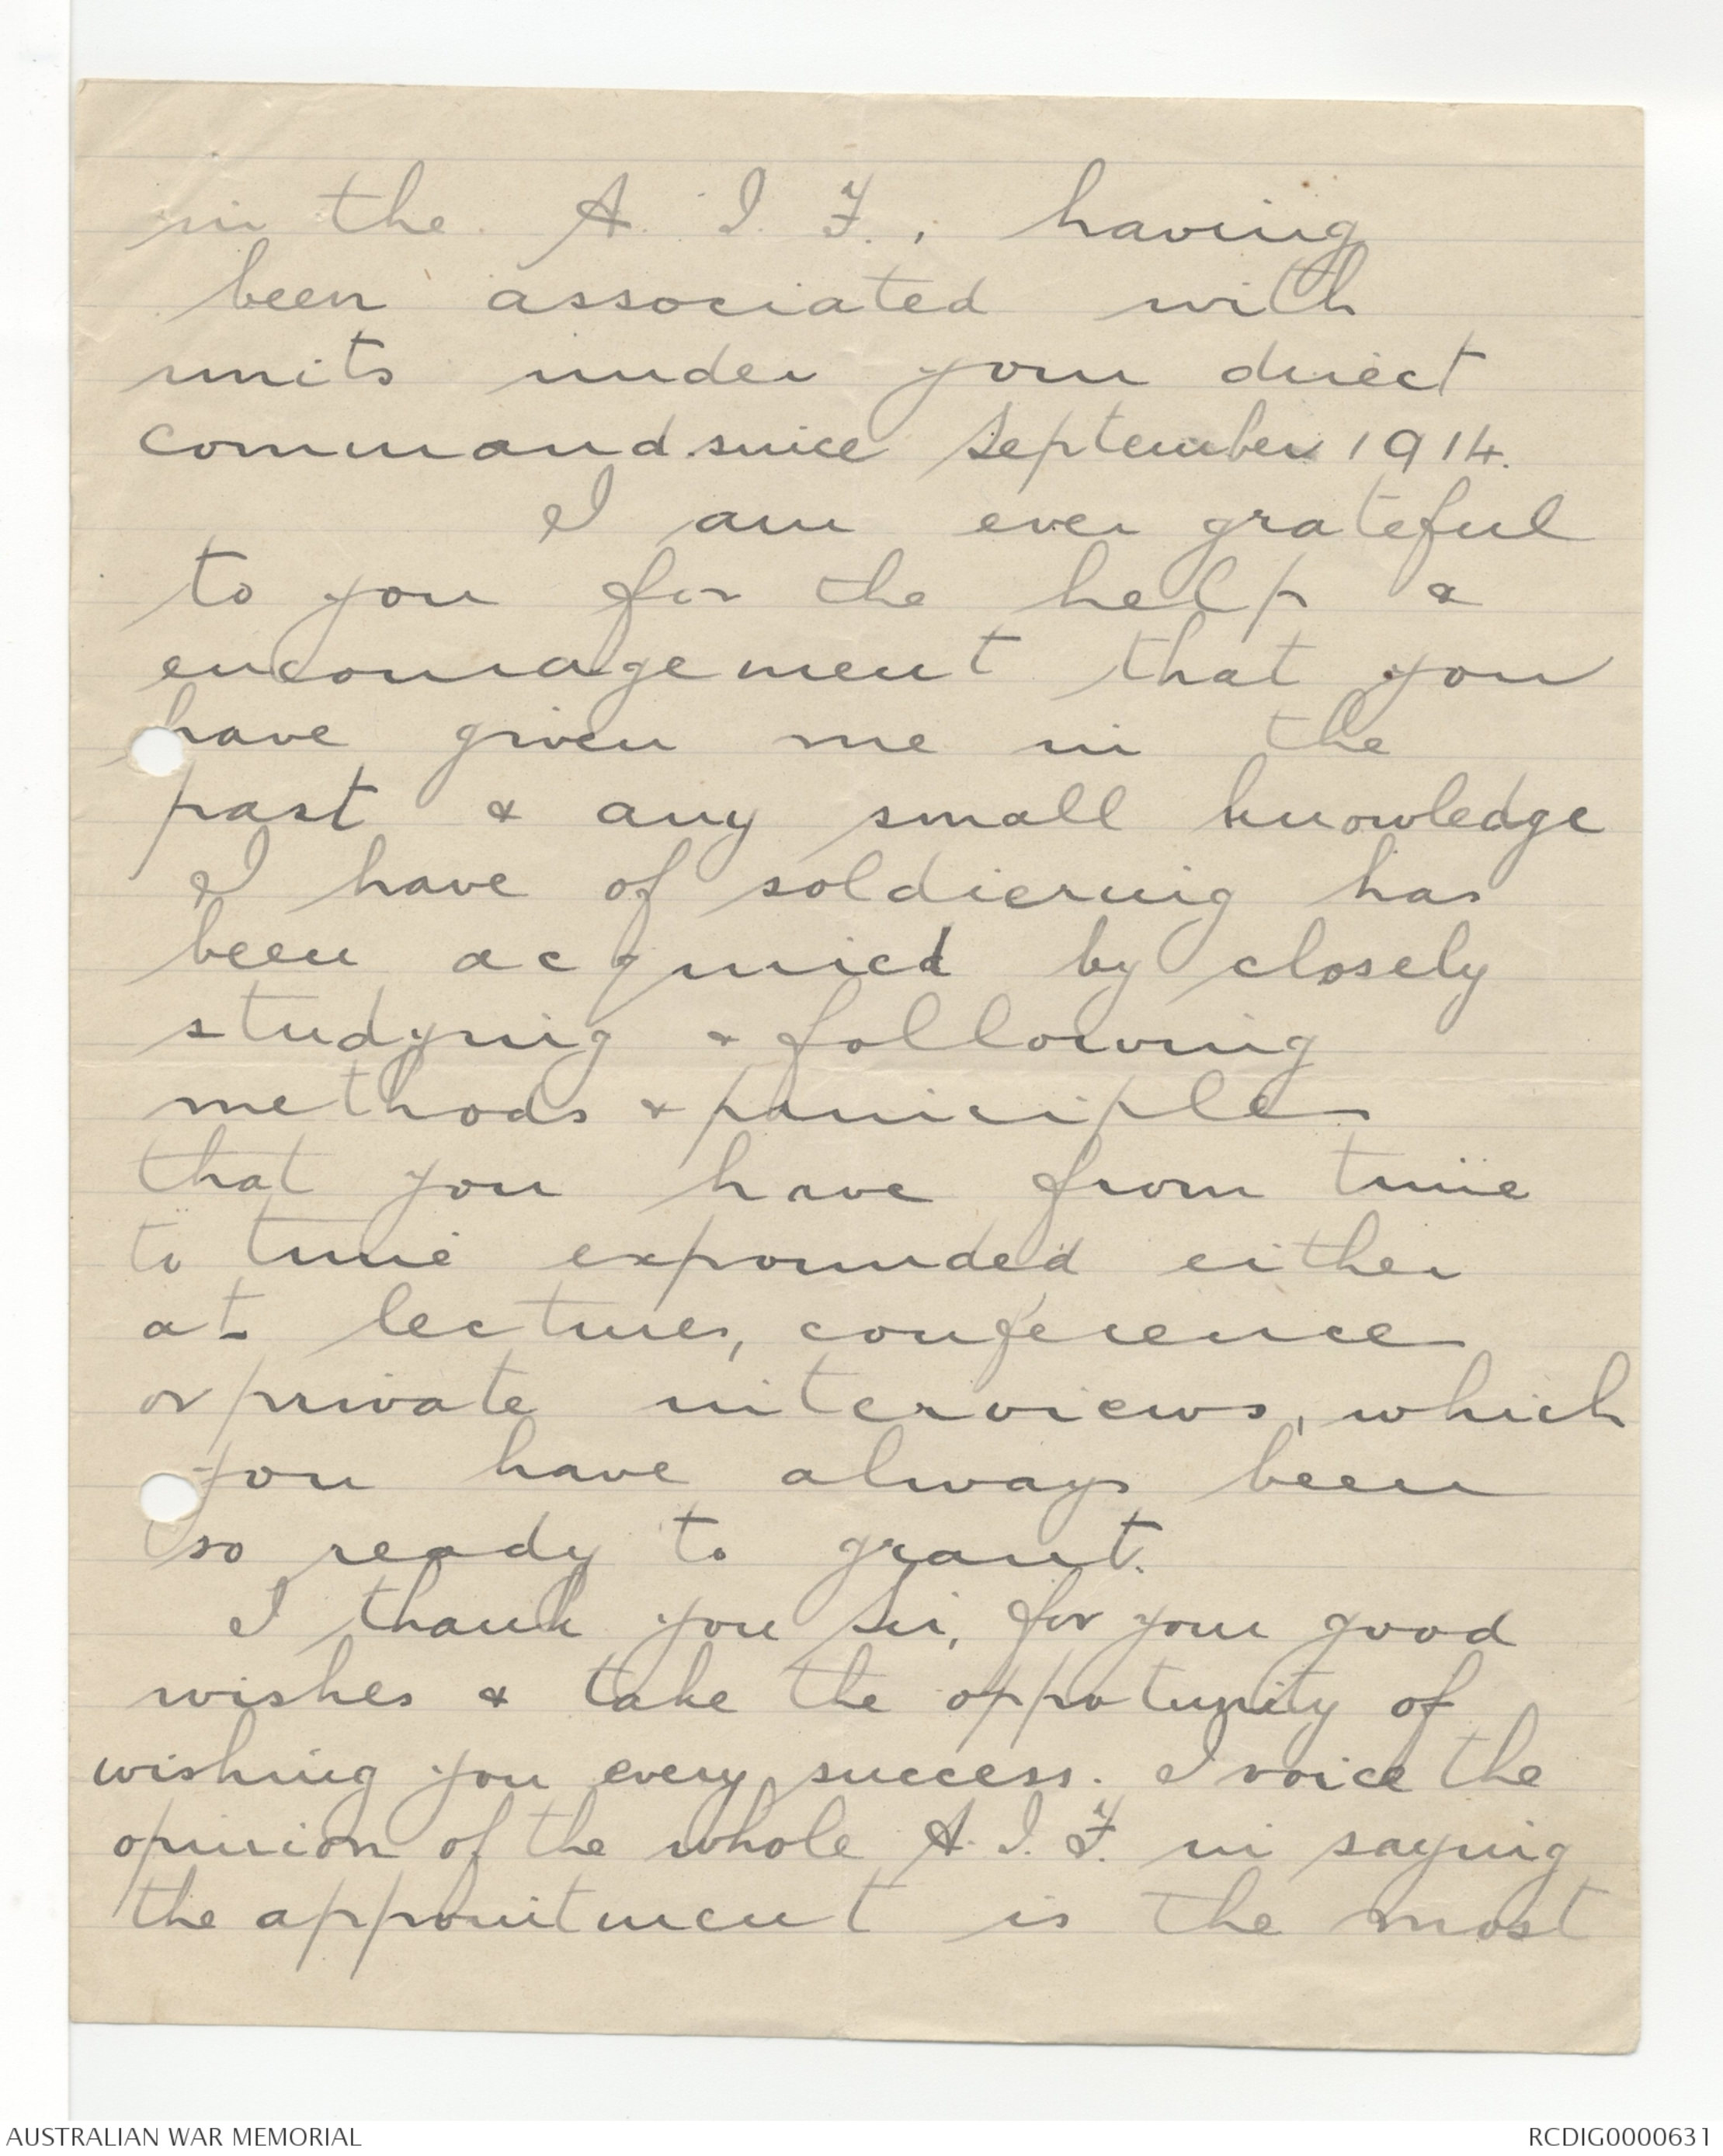 in the A. I. F., having
been associated with
units under your direct
command since September 1914.
I am ever grateful
to you for the help &
encouragement that you
have given me in the
past & any small knowledge
I have of soldiering has
been acquired by closely
studying & following
methods & principles
that you have from time
to time expounded either
at lectures, conferences
or private interviews, which
you have always been
so ready to grant.
I thank you Sir, for your good
wishes & take the oppotunity of
wishing you every success. I voice the
opinion of the whole A. I. F. in saying
the appointment is the most
AUSTRALIAN WAR MEMORIAL
RCDIG0000631